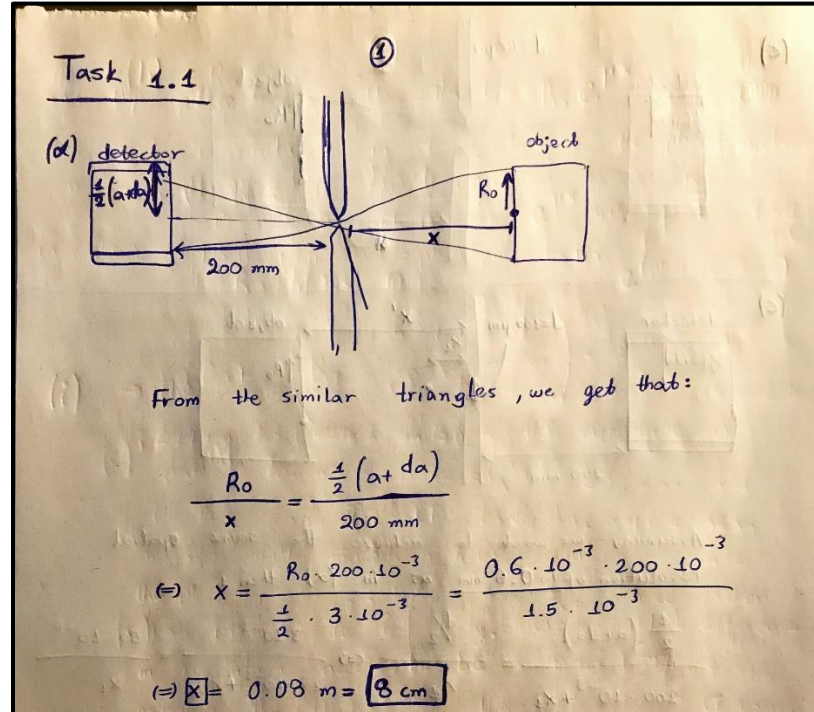 ①
Task 1.1
(a) detector
object
½(a+da)
R₀
x
200 mm
From the similar triangles, we get that:
R₀/x = ½(a+da)/200 mm
(=) x = R₀·200·10⁻³/½·3·10⁻³ = 0.6·10⁻³·200·10⁻³/1.5·10⁻³
(=) x = 0.08 m = 8 cm